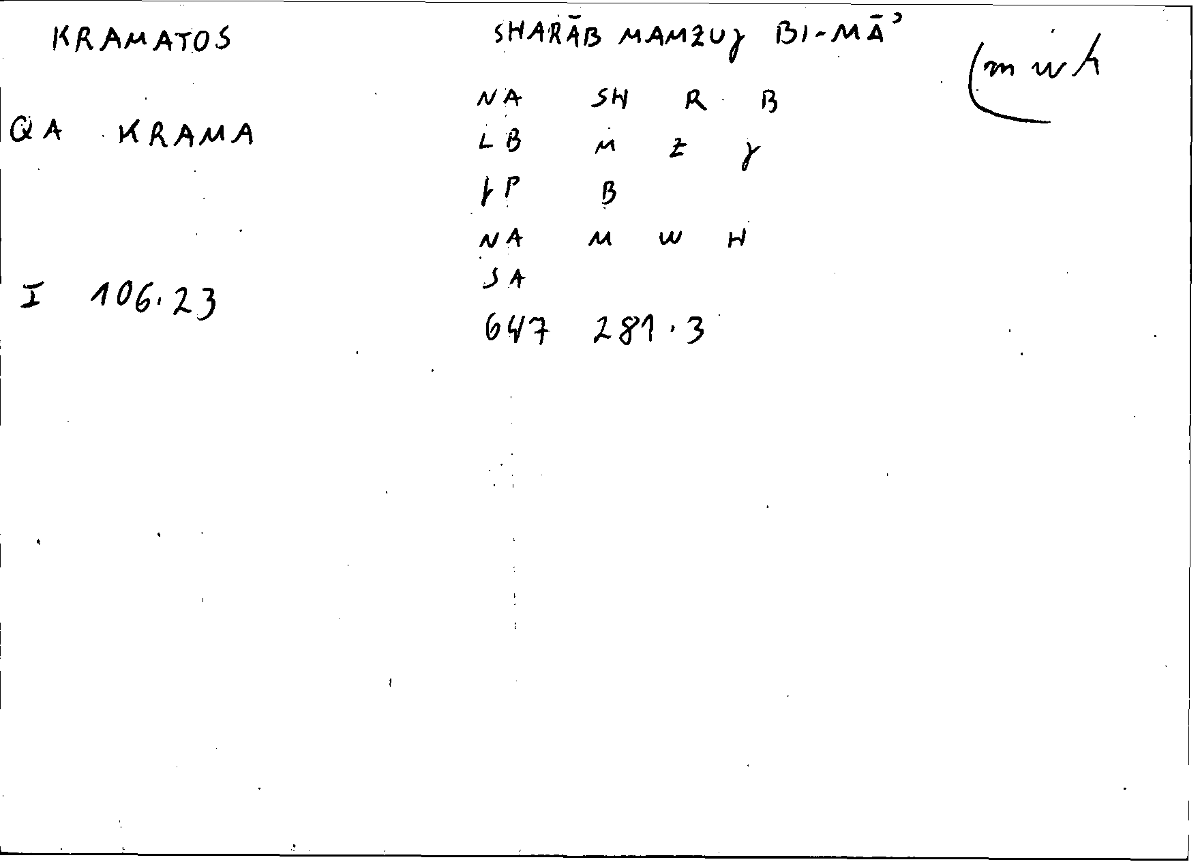 KRAMATOS
SHARĀB MAMZUJ BI-MĀʾ
(mwh
QA KRAMA
NA SH R B
LB M Z J
JP B
NA M W H
SA
I 106.23
647 281.3